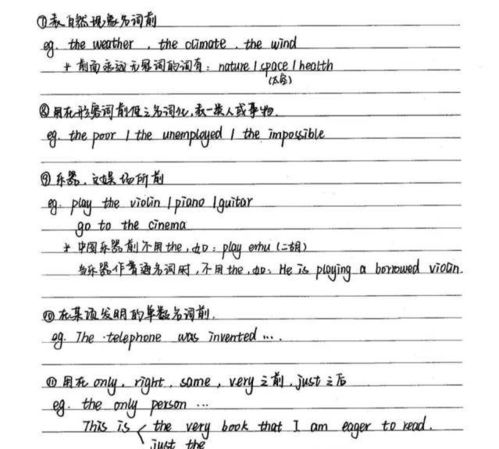 ⑦表自然现象名词前
eg. the weather, the climate, the wind
* 前面永远无冠词的词有: nature / space / health
(太空)
⑧用在形容词前使之名词化,表一类人或事物.
eg. the poor / the unemployed / the impossible
⑨乐器、文娱场所前
eg. play the violin / piano / guitar
go to the cinema
* 中国乐器前不用the, 如: play erhu (二胡)
当乐器作普通名词时, 不用the, 如: He is playing a borrowed violin.
⑩在某项发明的单数名词前.
eg. The telephone was invented ….
⑪用在only, right, same, very之前, just之后
eg. the only person …
This is < the very book that I am eager to read.
just the